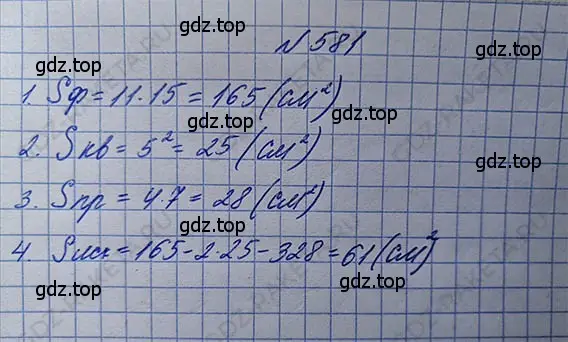 №581
gdz.top
gdz.top
1. Sф = 11·15 = 165 (см²)
gdz.top
gdz.top
2. Sкв = 5² = 25 (см²)
gdz.top
3. Sпр = 4·7 = 28 (см²)
gdz.top
4. Sиск = 165-2·25-328 = 61 (см²)
gdz.top
gdz.top